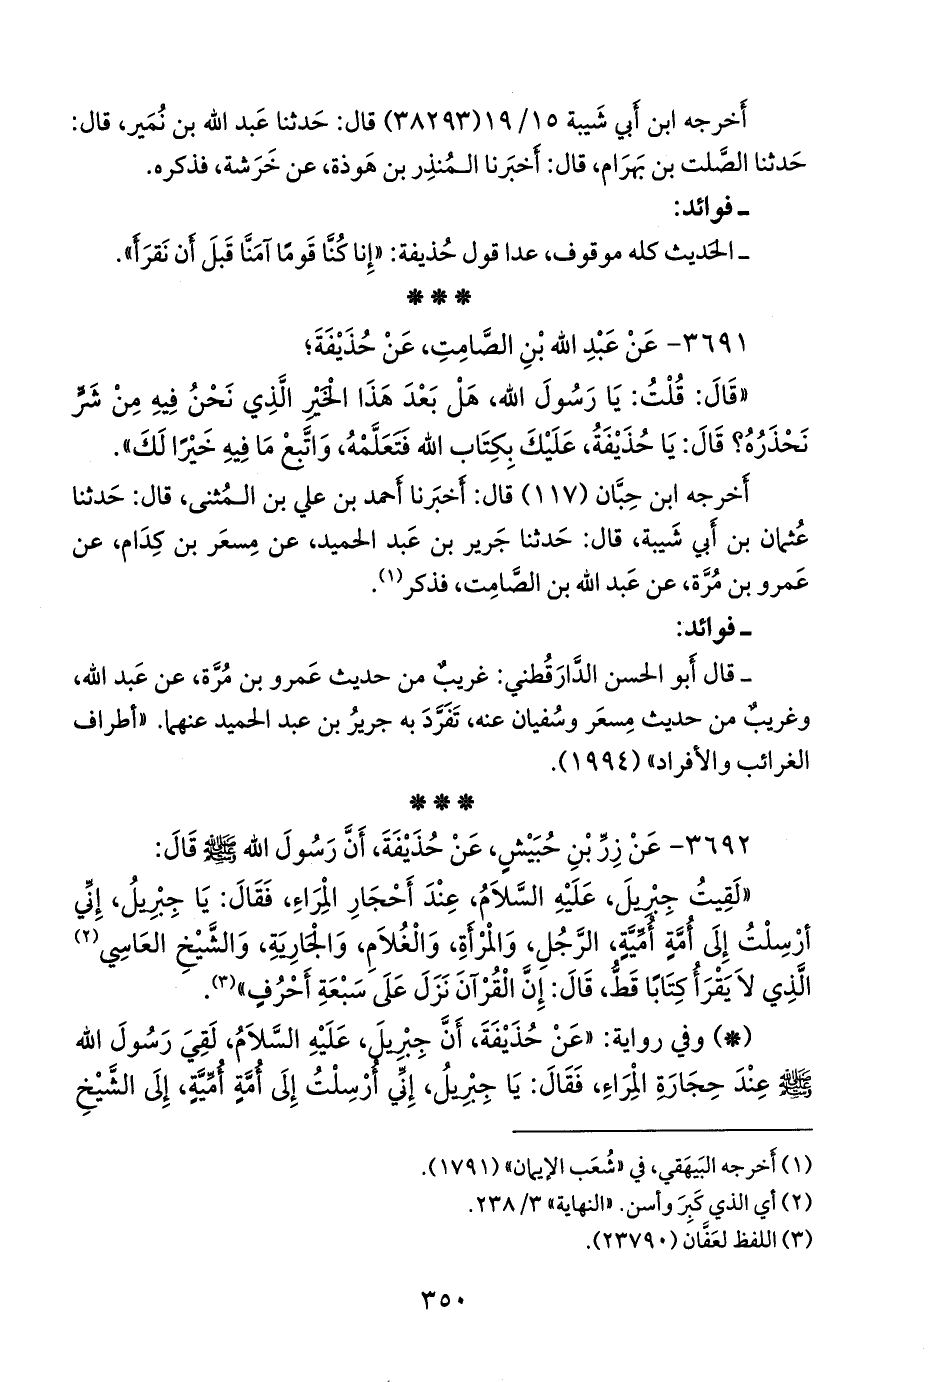 أَخرجه ابن أَبي شَيبة ١٥/ ١٩(٣٨٢٩٣) قال: حَدثنا عَبد الله بن نُمَير، قال:
حَدثنا الصَّلت بن بَهرَام، قال: أَخبَرنا الـمُنذِر بن هَوذة، عن خَرَشة، فذكره.
ـ فوائد:
ـ الحَديث كله موقوف، عدا قول حُذيفة: «إِنا كُنَّا قَومًا آمَنَّا قَبلَ أَن نَقرَأَ».
* * *
٣٦٩١- عَنْ عَبْدِ الله بْنِ الصَّامِتِ، عَنْ حُذَيْفَةَ؛
«قَالَ: قُلْتُ: يَا رَسُولَ الله، هَلْ بَعْدَ هَذَا الْخَيْرِ الَّذِي نَحْنُ فِيهِ مِنْ شَرٍّ
نَحْذَرُهُ؟ قَالَ: يَا حُذَيْفَةُ، عَلَيْكَ بِكِتَابِ الله فَتَعَلَّمْهُ، وَاتَّبِعْ مَا فِيهِ خَيْرًا لَكَ».
أَخرجه ابن حِبَّان (١١٧) قال: أَخبَرنا أَحمد بن علي بن الـمُثنى، قال: حَدثنا
عُثمان بن أَبي شَيبة، قال: حَدثنا جَرير بن عَبد الحَميد، عن مِسعَر بن كِدَام، عن
عَمرو بن مُرَّة، عن عَبد الله بن الصَّامِت، فذكر(١).
ـ فوائد:
ـ قال أَبو الحَسن الدَّارَقُطني: غريبٌ من حديث عَمرو بن مُرَّة، عن عَبد الله،
وغريبٌ من حديث مِسعَر وسُفيان عنه، تَفَرَّدَ به جريرُ بن عبد الحميد عنهما. «أطراف
الغرائب والأفراد» (١٩٩٤).
* * *
٣٦٩٢- عَنْ زِرِّ بْنِ حُبَيْشٍ، عَنْ حُذَيْفَةَ، أَنَّ رَسُولَ الله ﷺ قَالَ:
«لَقِيتُ جِبْرِيلَ، عَلَيْهِ السَّلاَمُ، عِنْدَ أَحْجَارِ الْمِرَاءِ، فَقَالَ: يَا جِبْرِيلُ، إِنِّي
أُرْسِلْتُ إِلَى أُمَّةٍ أُمِّيَّةٍ، الرَّجُلِ، وَالْمَرْأَةِ، وَالْغُلاَمِ، وَالْجَارِيَةِ، وَالشَّيْخِ العَاسِي(٢)
الَّذِي لاَ يَقْرَأُ كِتَابًا قَطُّ، قَالَ: إِنَّ الْقُرْآنَ نَزَلَ عَلَى سَبْعَةِ أَحْرُفٍ»(٣).
(*) وفي رواية: «عَنْ حُذَيْفَةَ، أَنَّ جِبْرِيلَ، عَلَيْهِ السَّلاَمُ، لَقِيَ رَسُولَ الله
ﷺ عِنْدَ حِجَارَةِ الْمِرَاءِ، فَقَالَ: يَا جِبْرِيلُ، إِنِّي أُرْسِلْتُ إِلَى أُمَّةٍ أُمِّيَّةٍ، إِلَى الشَّيْخِ
(١) أَخرجه البَيهَقي، في «شُعَب الإيمان» (١٧٩١).
(٢) أي الذي كَبِرَ وأسن. «النهاية» ٣/ ٢٣٨.
(٣) اللفظ لعَفَّان (٢٣٧٩٠).
٣٥٠